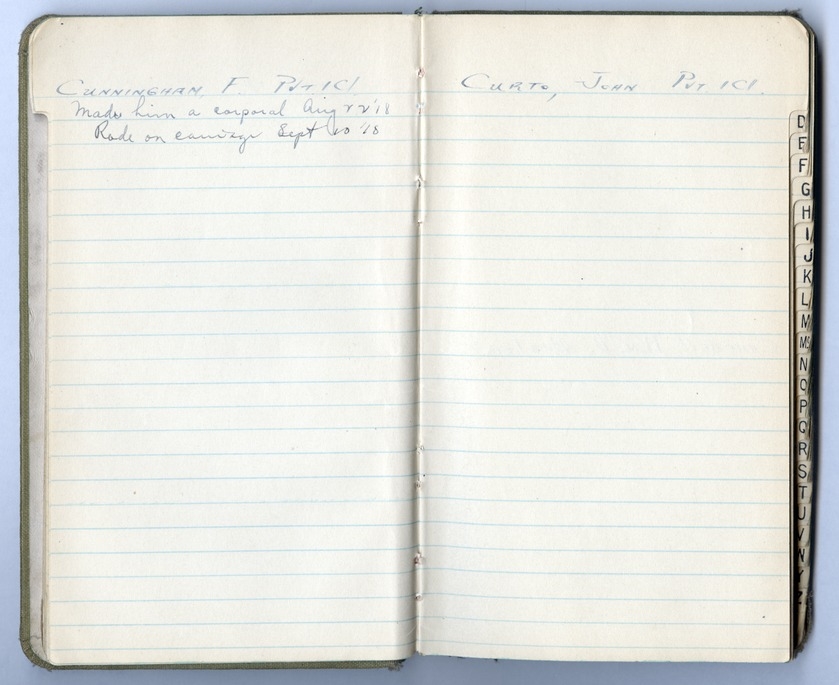 CUNNINGHAM, F. PVT. 1Cl.
Made him a corporal Aug 22 '18
Rode on carriage Sept 10 '18
CURTO, JOHN PVT. 1Cl.
D
E
F
G
H
I
J
K
L
M
Mc
N
O
P
Q
R
S
T
U
V
W
Y
Z